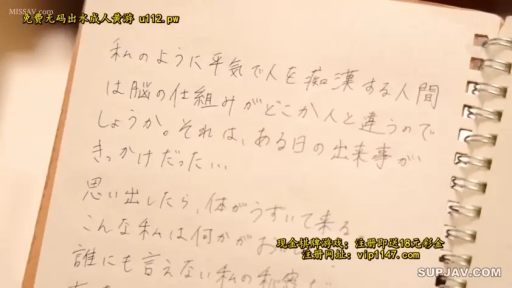 MISSAV.COM
免费无码出水成人黄游 u112.pw
私のように平気で人を痴漢する人間
は脳の仕組みがどこか人と違うので
しょうか。それは、ある日の出来事が
きっかけだった…
思い出したら、体がうずいて来る
こんな私は何かがお
现金棋牌游戏；注册即送18元彩金
誰にも言えない私の秘密
注册网址：vip1147.com
SUPJAV.COM